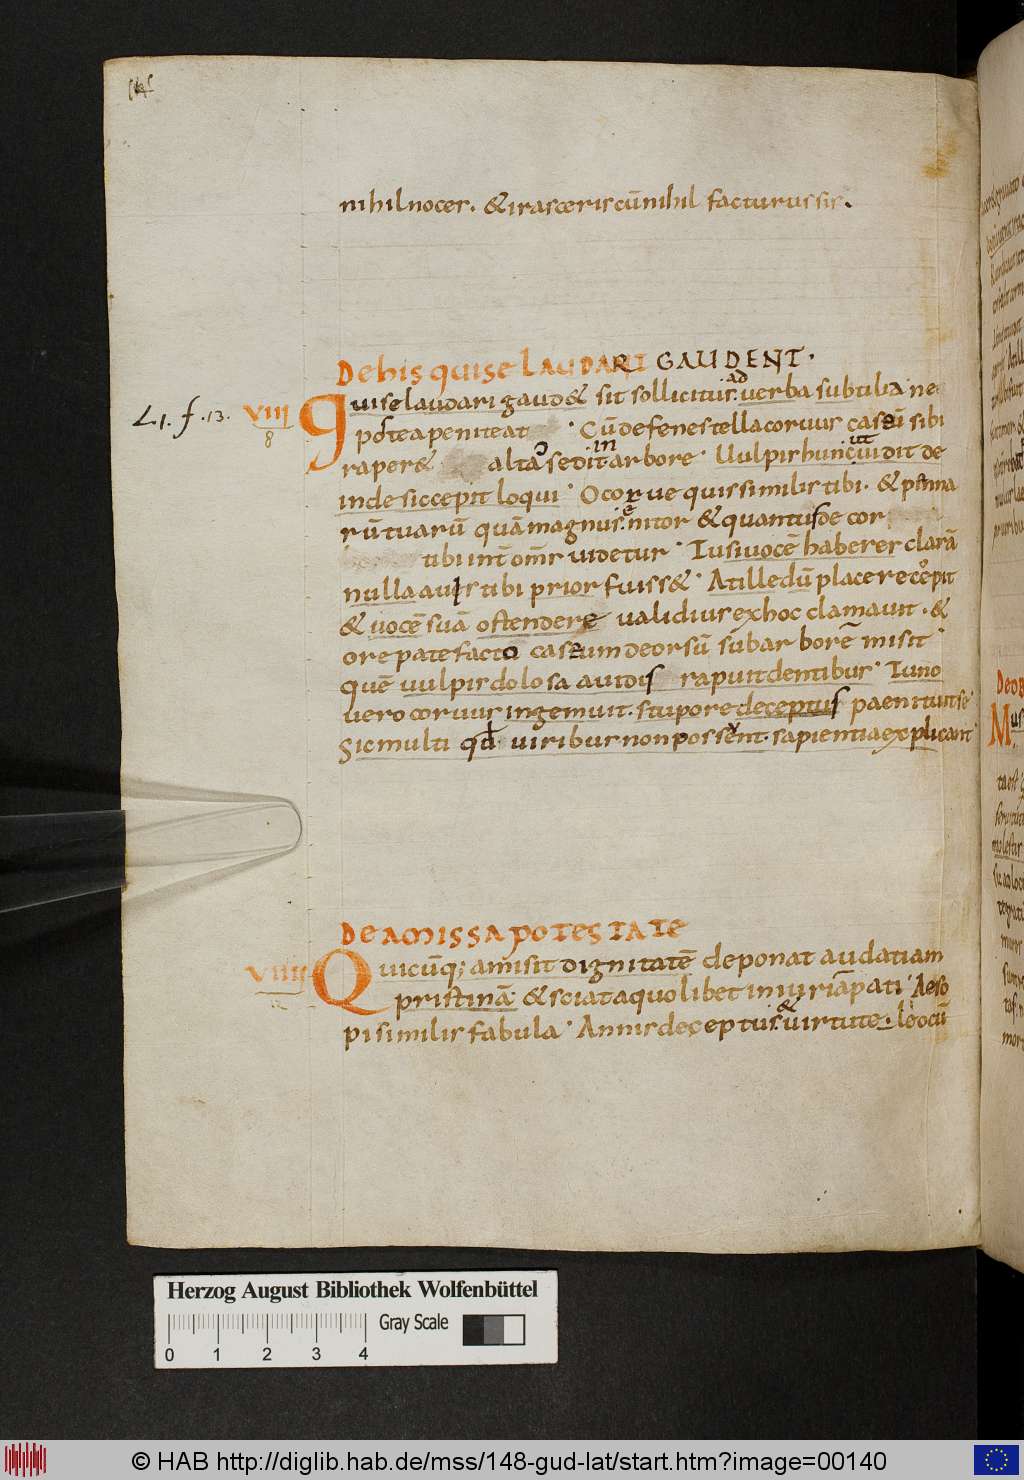 nihil nocer. & irasceris cū nihil facturus sis.
De his qui se LAUDARI GAUDENT.
L1. f. 13.
VIII
8
Qui se laudari gaud& sit sollicitus ad verba subtilia ne
postea peniteat. Cū de fenestella corvus caseū sibi
raper& alta sedit in arbore. Uulpis hunc ut vidit de
inde sic cepit loqui. O corve quis similis tibi. & pēnna
rū tuarū quā magnus ē nitor & quantus decor
tibi int̄ om̄s videtur. Tu si vocē haberes clarā
nulla avis tibi prior fuiss&. At ille dū placere cepit
& vocē suā ostendere validius exhoc clamavit. &
ore patefacto caseum deorsū subar borē misit
quē vulpis dolosa avidis rapuit dentibus. Tunc
vero corvus ingemuit. stupore deceptus paenituit se
Sic multi qđ viribus non possent. sapientia explicant
DE AMISSA POTESTATE
VIIII
Quicūq; amisit dignitatē deponat audatiam
pristinā & sciat a quolibet iniuriā pati. Aeso
pi similis fabula. Annis deceptus & virtute. leo cū
Herzog August Bibliothek Wolfenbüttel
Gray Scale
0 1 2 3 4
© HAB http://diglib.hab.de/mss/148-gud-lat/start.htm?image=00140